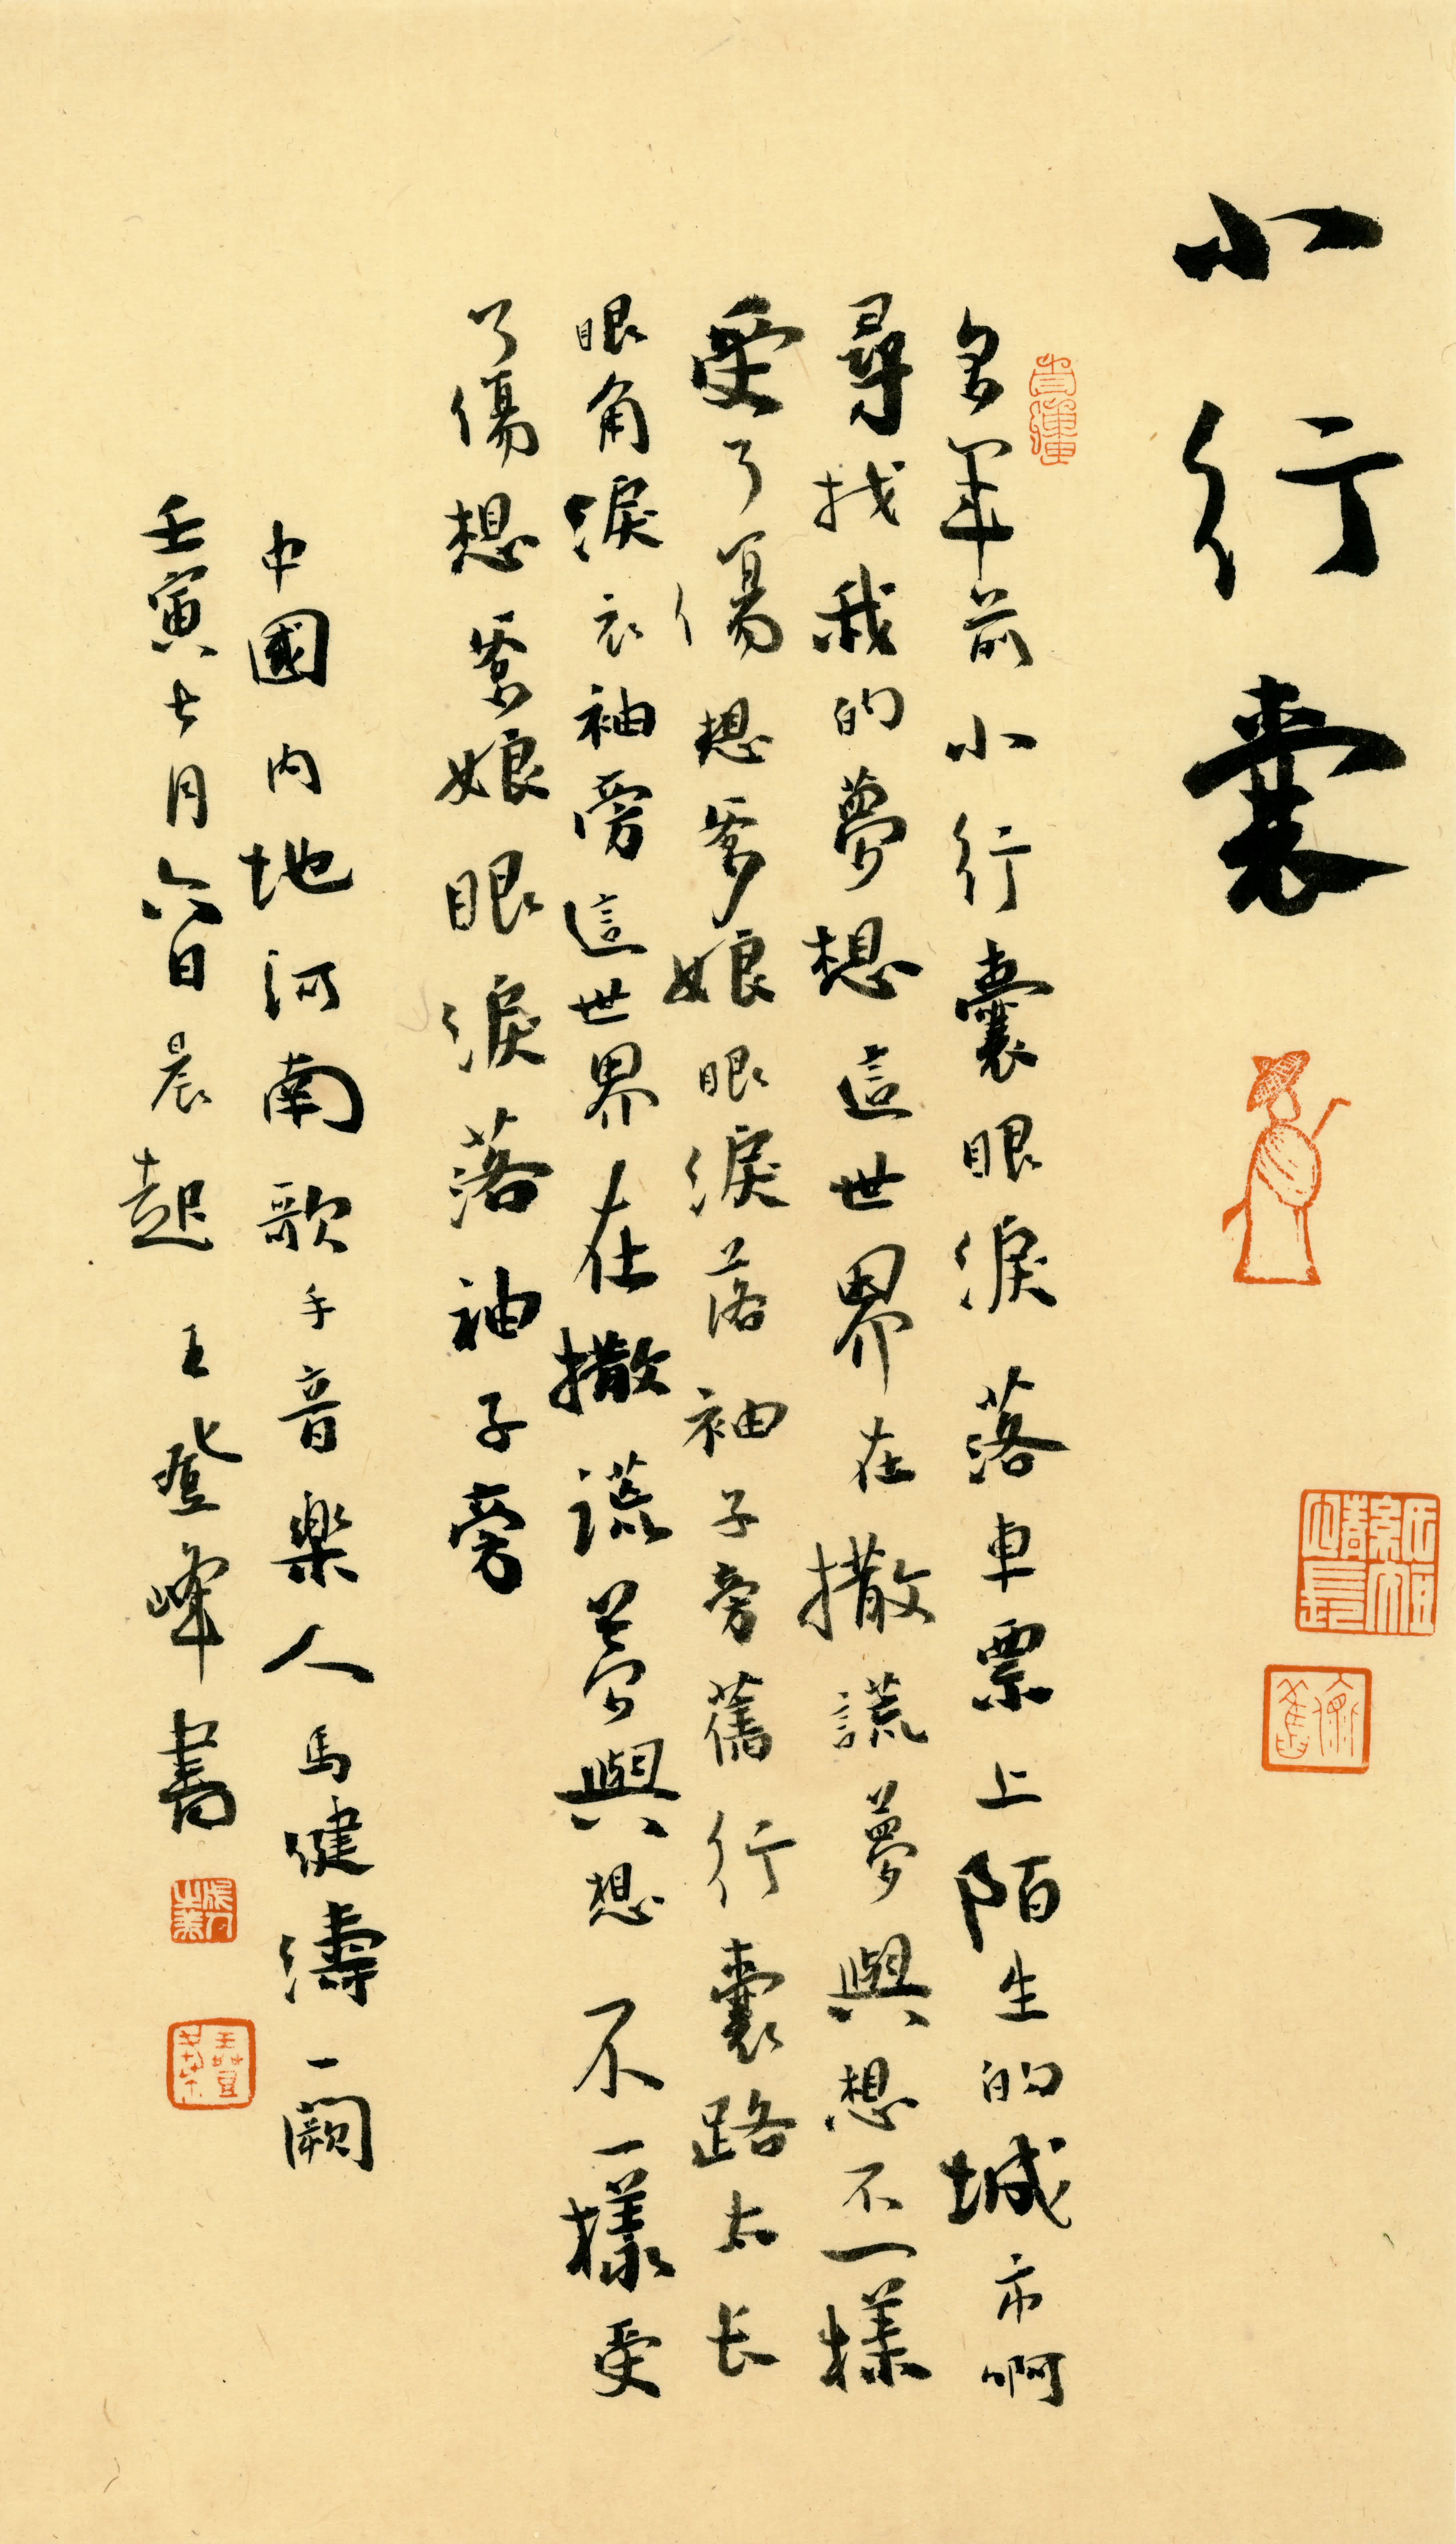 小行囊
多年前小行囊眼淚落車票上陌生的城市啊
尋找我的夢想這世界在撒謊夢與想不一樣
受了傷想爹娘眼淚落袖子旁舊行囊路太长
眼角淚衣袖旁這世界在撒謊夢與想不一樣受
了傷想爹娘眼淚落袖子旁
中國内地河南歌手音樂人馬健濤一闕
壬寅七月六日晨起王登峰書